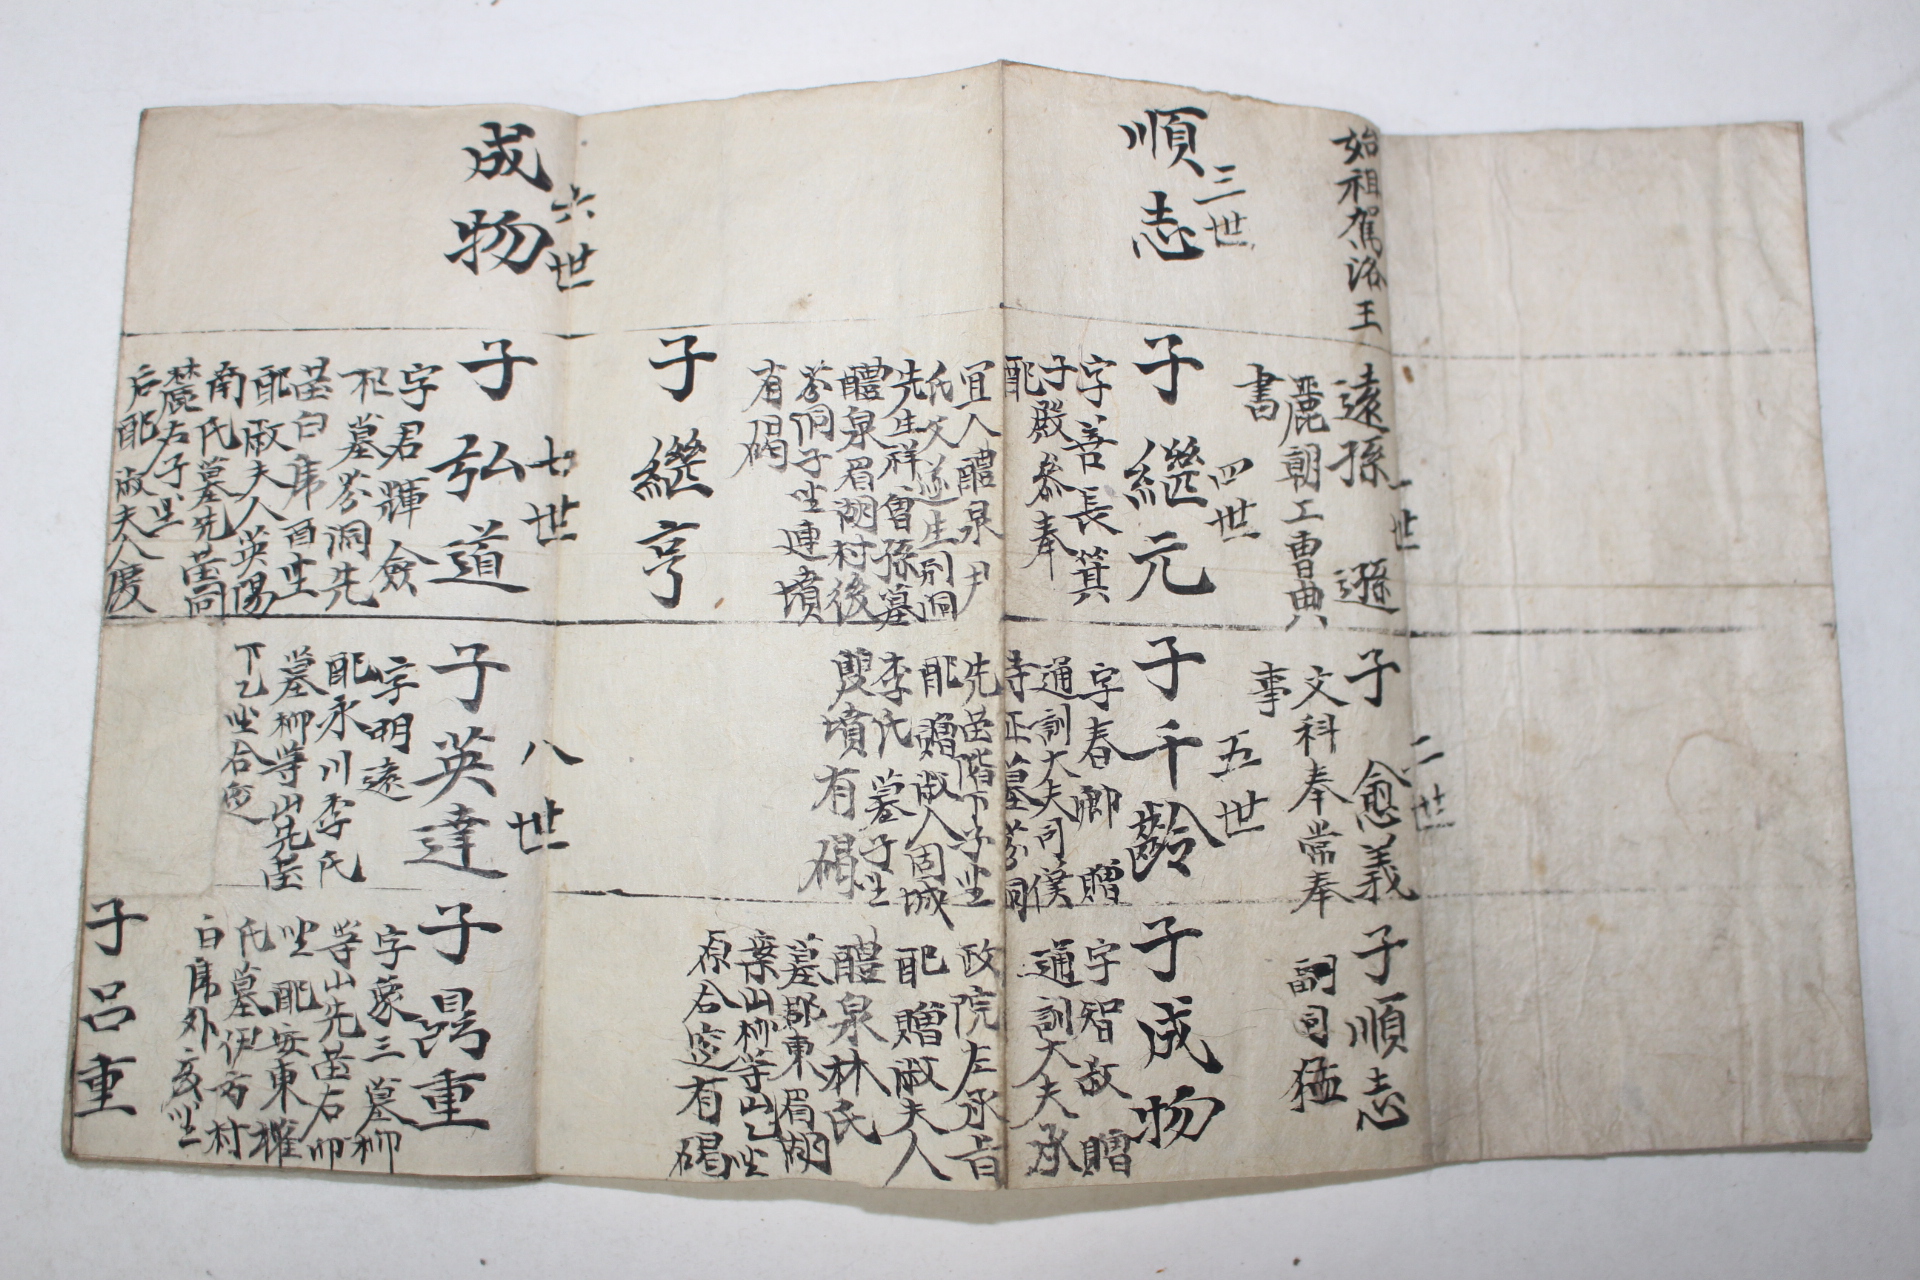 始祖駕洛王
遠孫 遜
一世
麗朝工曹典
書
子 愈義
二世
文科奉常奉
事
子順志
副司猛
順志
三世
子繼元
四世
字善長箕
子殿參奉
配
宜人醴泉尹
氏父遂生別洞
先生祥曾孫墓
醴泉眉湖村後
芬洞子坐連墳
有碣
子千齡
五世
字春卿 贈
通訓大夫司僕
寺正墓芬洞
先塋階下子坐
配 贈淑人固城
李氏墓子坐
雙墳有碣
子成物
字智故 贈
通訓大夫承
政院左承旨
配 贈淑夫人
醴泉林氏
墓郡東眉湖
葉山柳等山乙坐
原合窆有碣
子繼亨
成物
六世
子弘道
七世
字君輝 僉
樞墓芬洞先
塋白虎酉坐
配淑夫人英陽
南氏墓先塋同
麓右子坐
后配 淑夫人慶
子英達
八世
字明遠
配永川李氏
墓柳等山先塋
下乙坐合窆
子錫重
字蒙三墓柳
等山先塋右卯
坐 配安東權
氏墓伊方村
白虎外亥坐
子呂重